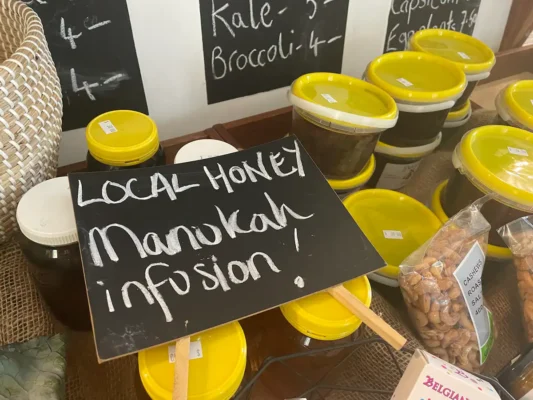 4-
4-
Kale - 3-
Broccoli - 4-
Capsicum
Eggplants 7.
LOCAL HONEY
Manukah
infusion!
CASHEWS
ROAS
SAL
BELGIAN